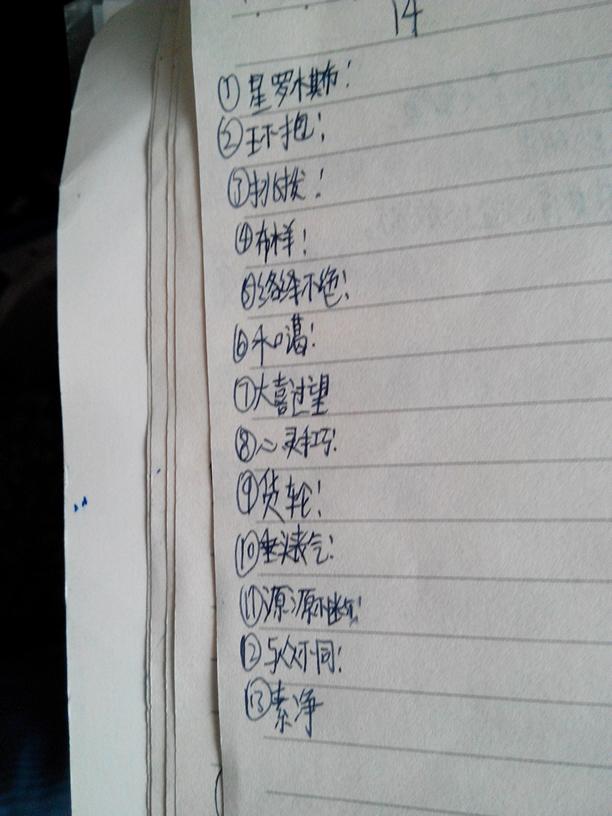 14
①星罗木棋布!
②环抱!
③挑拨!
④布样!
⑤络绎不绝!
⑥和蔼!
⑦大喜过望
⑧心灵手巧!
⑨货轮!
⑩垂头丧气!
⑪源源不断!
⑫与众不同!
⑬素净